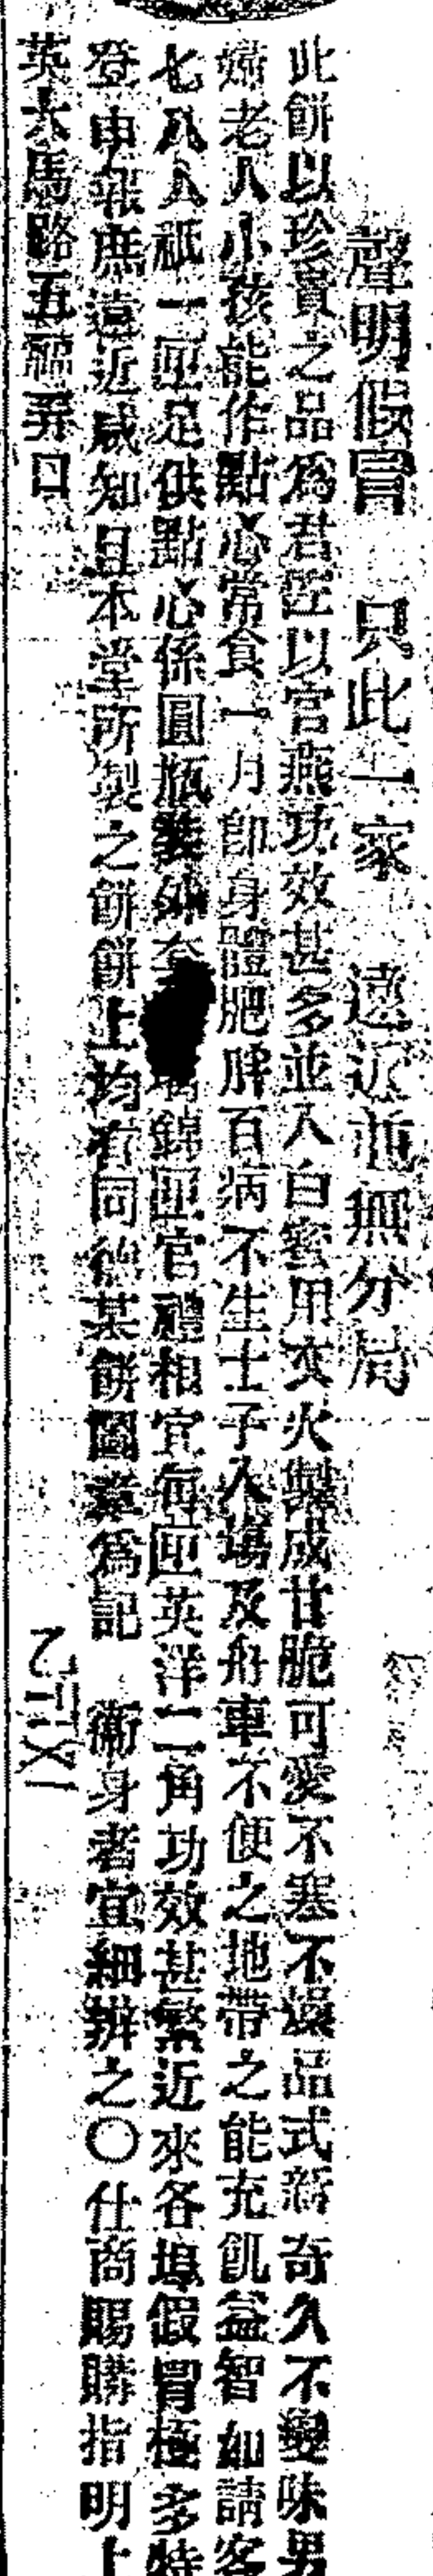 聲明假冒　只此一家　遠近並無分局
此餅以珍貴之品為君臣以官燕功效甚多並入白蜜用文火製成甘脆可愛不寒不燥品式新奇久不變味男
婦老人小孩能作點心常食一月即身體肥胖百病不生士子入塲及舟車不便之地帶之能充飢益智如請客
七八人祇一匣足供點心係圓瓶裝外套璃錦匣官禮相宜每匣英洋二角功效甚繁近來各埠假冒極多特
登申報庶遠近咸知且本堂所製之餅餅上均有同德某餅圖章為記　衛身者宜細辨之〇仕商賜購指明上
英大馬路五福弄口